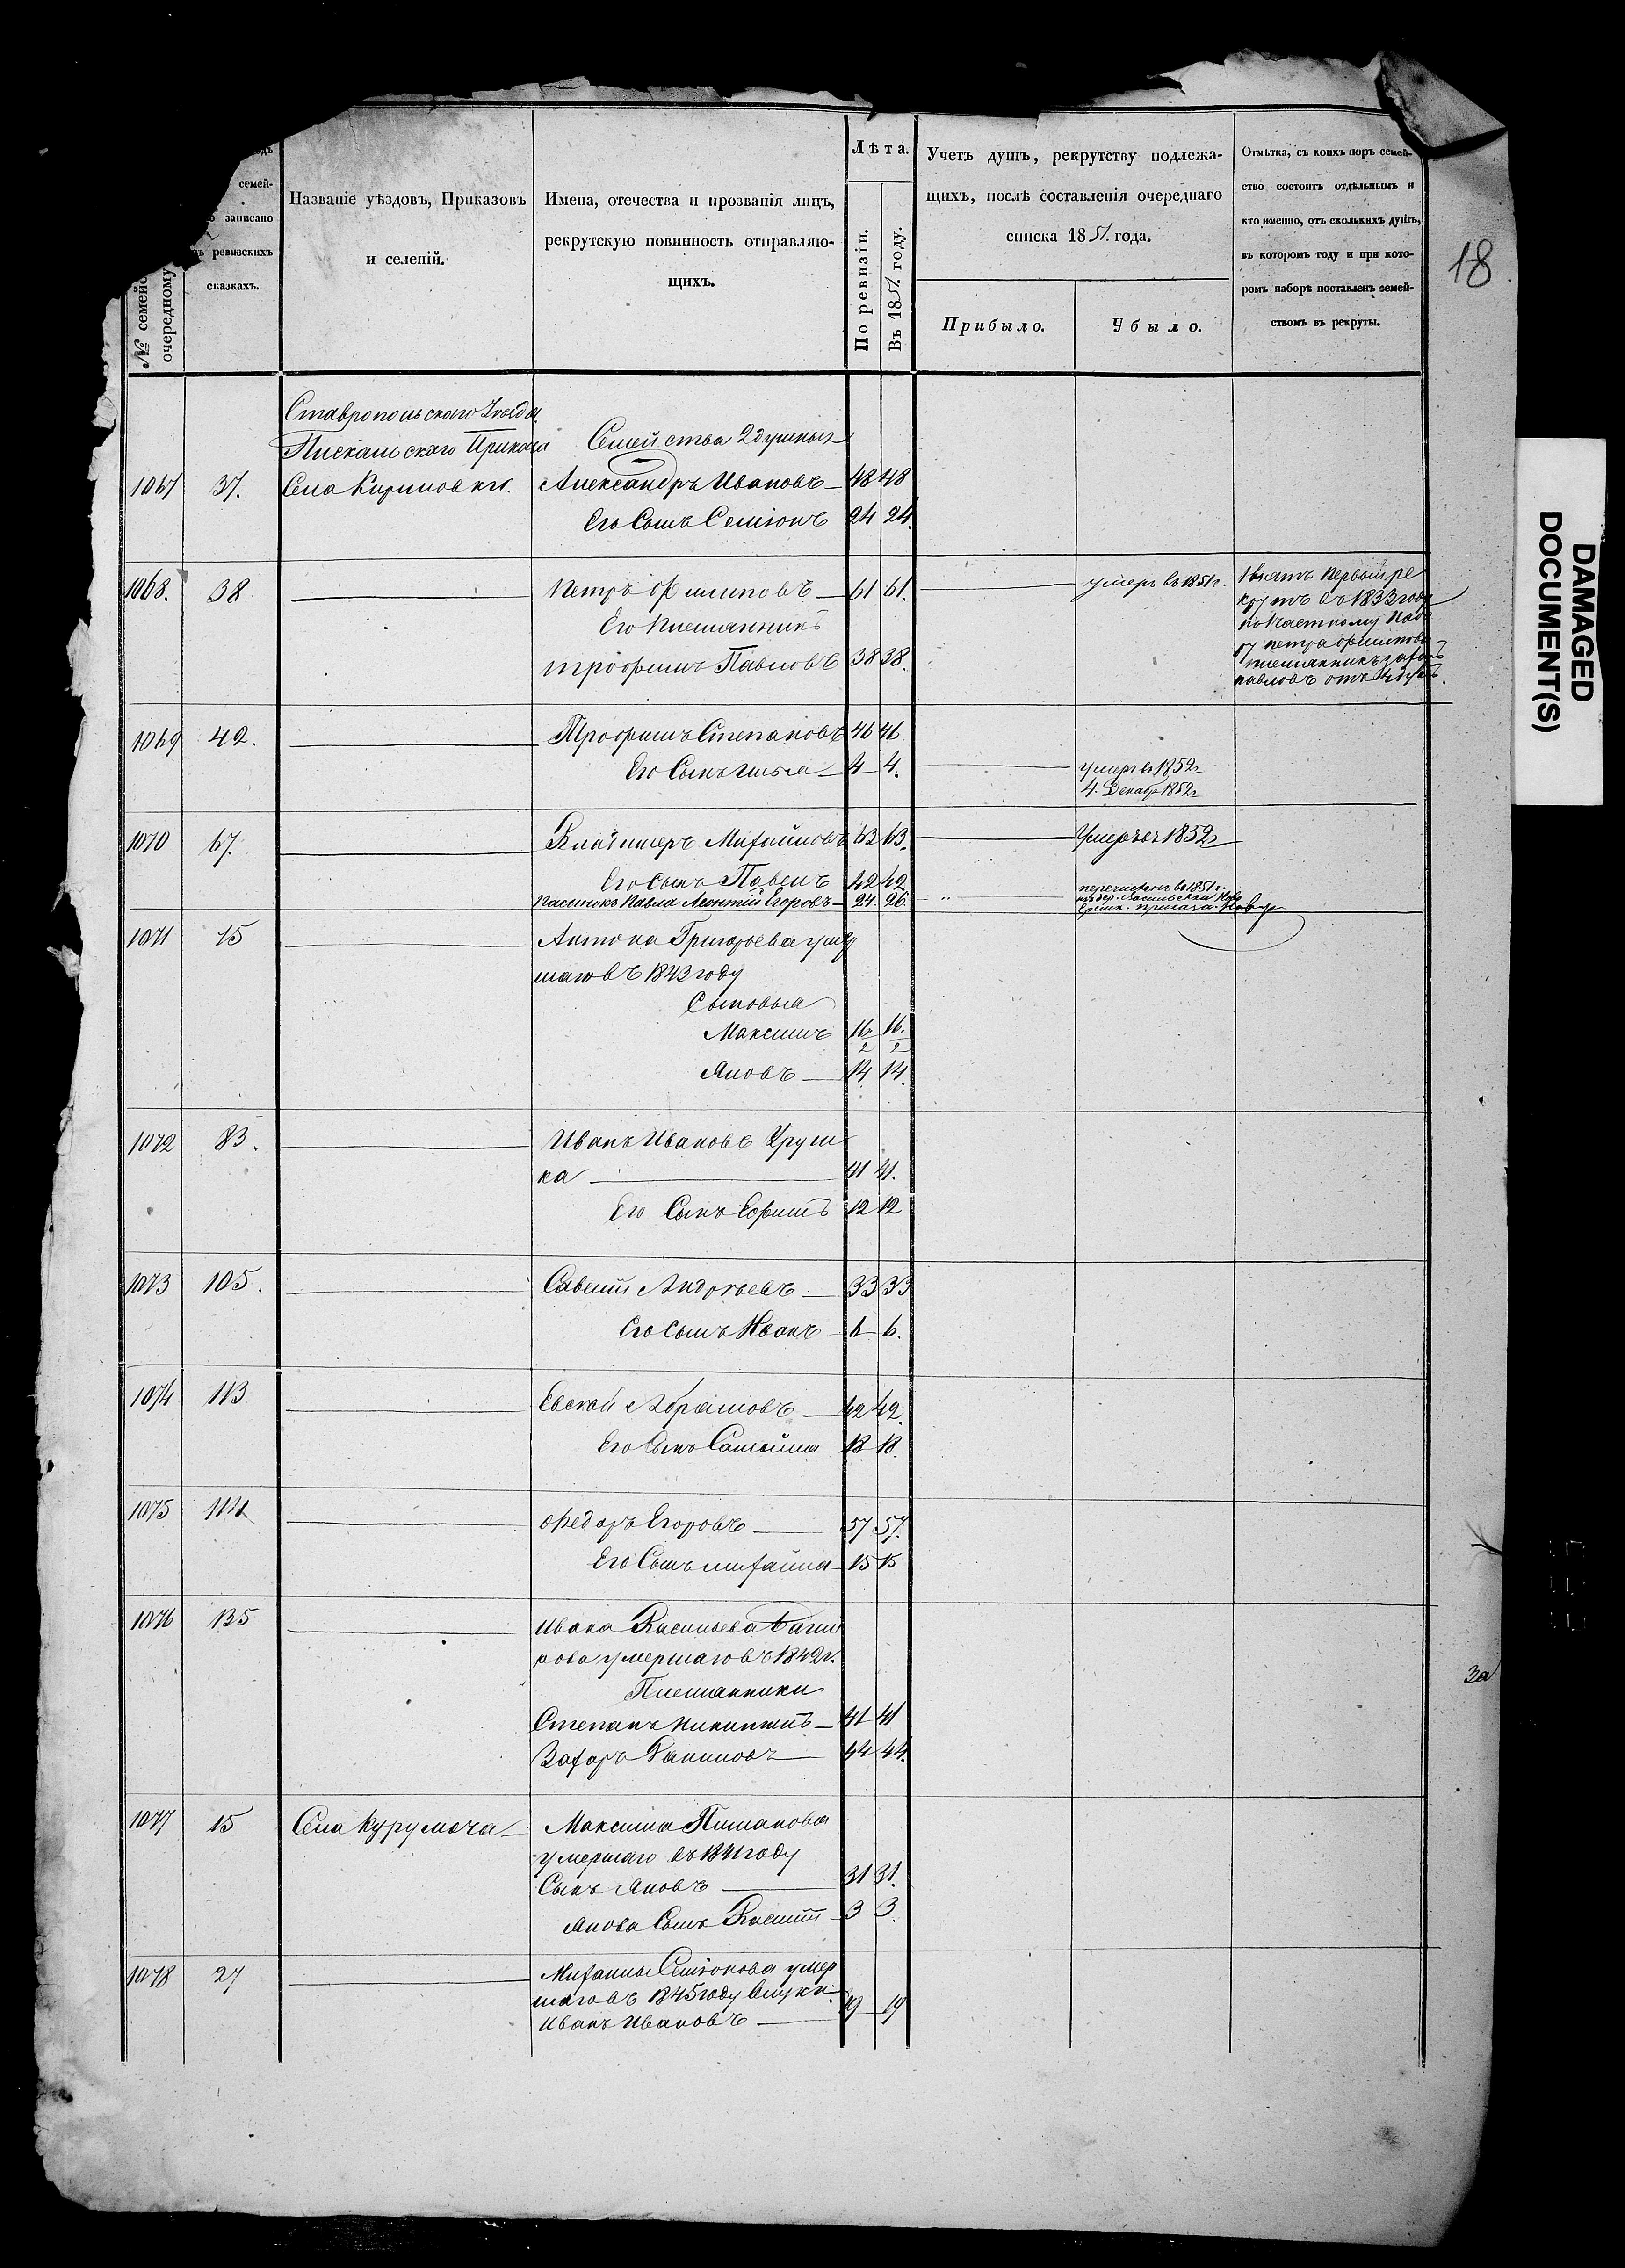 18
DAMAGED
DOCUMENT(S)
семей-
записано
ревизскихъ
сказкахъ.
№ семейс
очередному
Названіе уѣздовъ, Приказовъ
и селеній.
Имена, отечества и прозванія лицъ,
рекрутскую повинность отправляю-
щихъ.
Лѣта.
По ревизіи.
Въ 1851 году.
Учетъ душъ, рекрутству подлежа-
щихъ, послѣ составленія очереднаго
списка 1851 года.
Прибыло.
Убыло.
Отмѣтка, съ коихъ поръ семей-
ство состоитъ отдѣльнымъ и
кто именно, отъ сколькихъ душъ,
въ которомъ году и при кото-
ромъ наборѣ поставленъ семей-
ствомъ въ рекруты.
Ставропольскаго Уѣзда
Пискальскаго Приказа Семейства 2 душныя
1067 37. Села Кириловки. Александръ Ивановъ 48 48
Его Сынъ Семіонъ 24 24.
1068. 38 Петръ Филиповъ 61 61. умеръ въ 1851 г.
Его племянникъ
трофимъ Павловъ 38 38.
взятъ первый ре
крутъ въ 1833 году
по частному набо
ру петра филипова
племянникъ захаръ
павловъ отъ 4 душъ.
1069 42. Трофимъ Степановъ 46 46
Его Сынъ Илья 4 4. умеръ въ 1852 г
4. Декабр 1852 г
1070 67. Владимеръ Михайловъ 63 63. Умеръ въ 1852 г
Его Сынъ Павелъ 42 42
пасынокъ Павла Леонтій Егоровъ 24 26 перечисленъ въ 1851 г.
приказа.
1071 75 Антона Григорьева умер
шаго въ 1843 году
Сыновья
Максимъ 16/2 16./2
Яковъ 14 14.
1072 83. Иванъ Ивановъ Хруш
ка 41 41.
Его Сынъ Ефимъ 12 12
1073 105. Савелій Андреевъ 33 33
Его Сынъ Иванъ 6 6.
1074 113 Евсей Абрамовъ 42 42.
Его Сынъ Самойла 18 18.
1075 114 Федоръ Егоровъ 57 57.
Его Сынъ михайла 15 15
1076 135 Ивана Васильева
рова умершаго въ 1842 г.
Племянники
Степанъ никитинъ 41 41
Захаръ Даниловъ 44 44.
1077 15 Села Курумоча Максима Пиманова
умершаго въ 1841 году
Сынъ Яковъ 31 31.
Якова Сынъ Василій 3 3.
1078 27 Михайлы Семіонова умер
шаго въ 1845 году внукъ
Иванъ Ивановъ 19 19
за